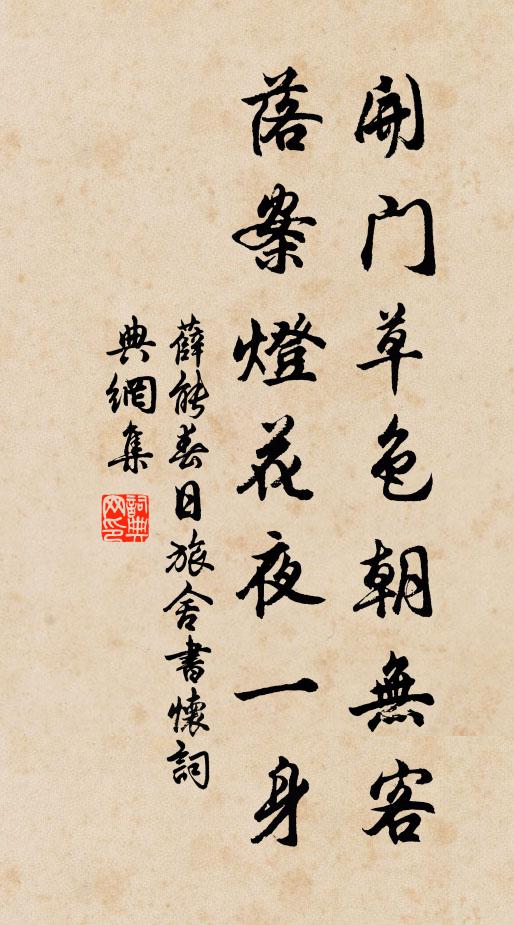 開門草色朝無客
落案燈花夜一身
薛能春日旅舍書懷詞
典網集
詞典
网印